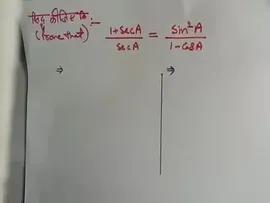 सिद्ध कीजिए कि :-
(Prove that) (1+SecA)/SecA = Sin²A/(1-CosA)
⇒ ⇒